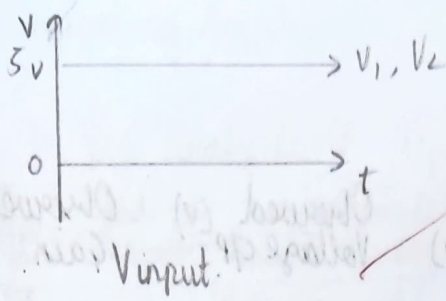 V
5v
V1, V2
0
t
Vinput.